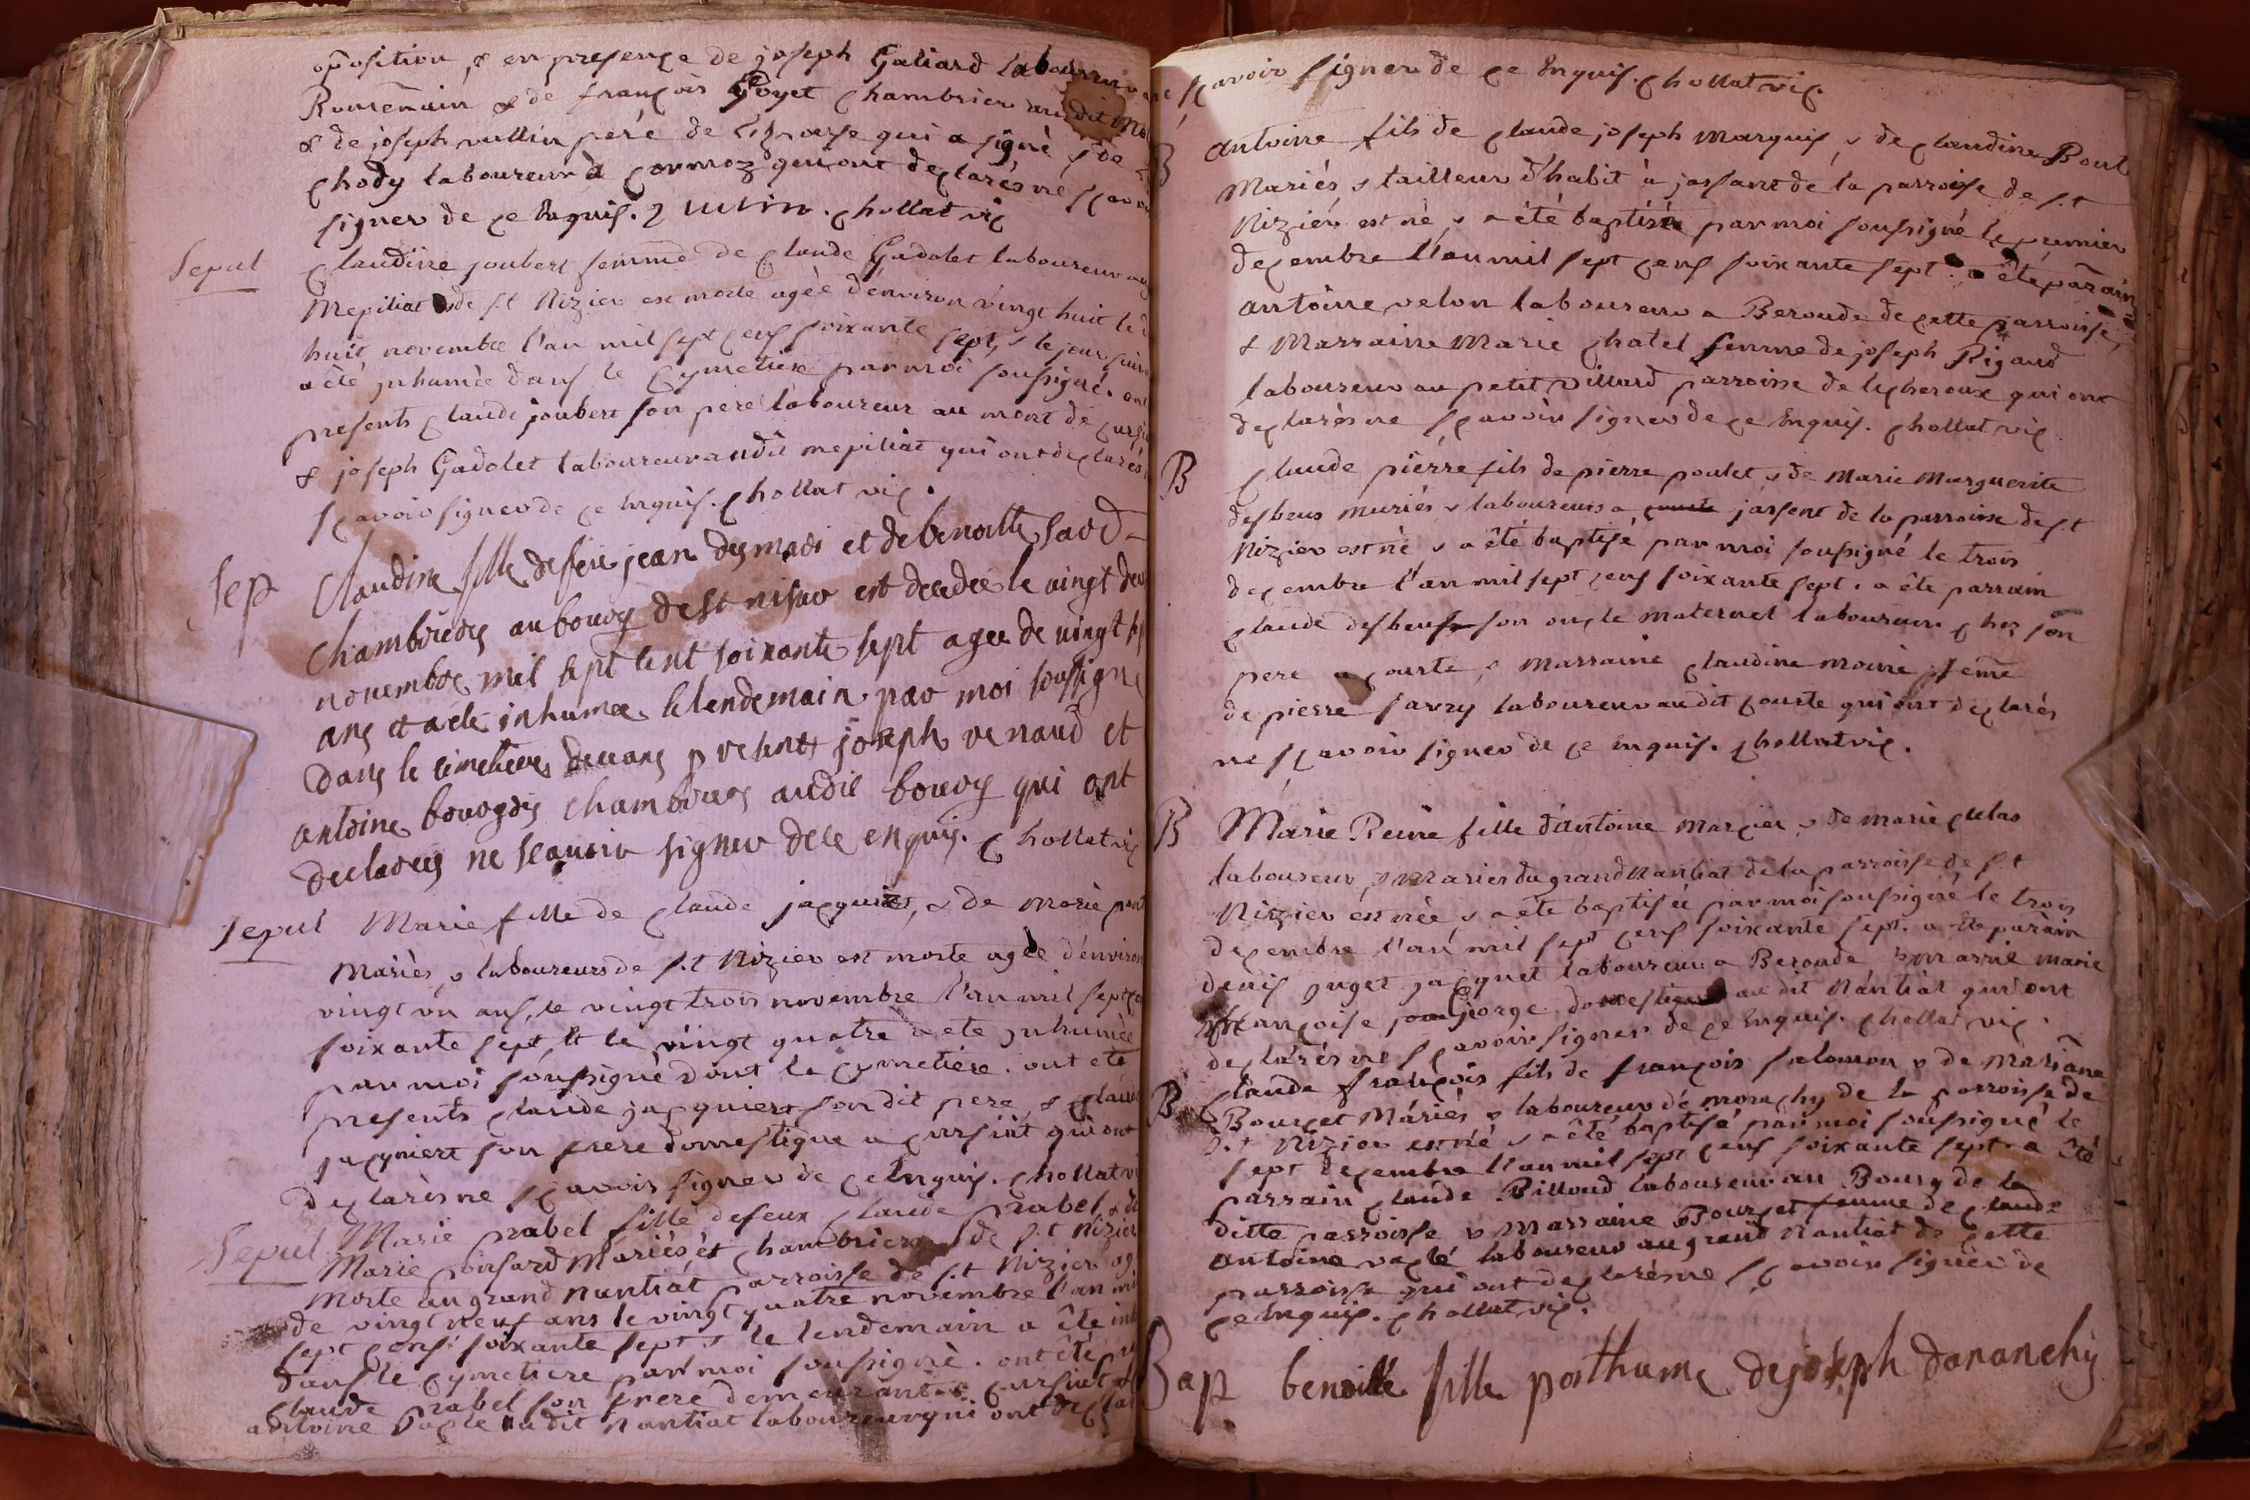 oposition, & en presence de joseph Galiard laboureur
Romenain & de françois Goyet chambrier audit
& de joseph vullin peré de l'Epouse qui a signé & de
chody laboureur à cormoz qui ont declarés ne scavoir
signer de ce Enquis. J vulin. chollat vic
Sepul
claudine joubert femme de claude Gadolet laboureur au
Mepiliat de s.t Nizier est morte agèe d'environ vingt huit le
huit novembre l'an mil sept cens soixante sept, & le jour suiv
a êté inhumèe dans le Cymetiere par moi soussigné. ont
presents claude joubert son pere laboureur au mont de cursiat
& joseph Gadolet laboureur audit mepiliat qui ont declarés
scavoir signer de ce Enquis. chollat vic.
Sep
Claudine fille de feu jean desmaris et de benoitte savd
chambrieres au bourg de st nisier est decedée le vingt deux
novembre mil sept cent soixante sept agee de vingt
ans et a été inhumee le lendemain par moi soussigné
dans le cimetiere decians present joseph renaud et
antoine bourgois chambriers audit bourg qui ont
declarés ne scavoir signer de ce enquis. chollat vic
Sepul Marie fille de claude jacquiert, & de Marie pont
Mariès, & laboureurs de s.t Nizier est morte agèe d'environ
vingt un ans, le vingt trois novembre l'an mil sept cens
soixante sept, & le vingt quatre a ete inhumèe
par moi soussigné dont le cymetiere. ont ete
presents claude jacquiert son dit pere, & claude
jacquiert son frere domestique a cursiat qui ont
declarès ne scavoir signer de ce Enquis. chollat vic
Sepul. Marie rabel fille de feux claude rabel & de
Marie poirsard Mariés, et chambriers de s.t Nizier
Morte au grand Nantiat parroisse de s.t Nizier ag
de vingt neuf ans le vingt quatre novembre l'an mil
sept cens soixante sept & le lendemain a ête inh
dans le cymetiere par moi soussignè. ont êté pr
claude rabel son frere demeurant a cursiat &
antoine vacle audit Nantiat laboureur qui ont decla
ne scavoir signer de ce Enquis. chollat vic.
B
Antoine fils de claude joseph Marquis, & de claudine Boul
Mariés & tailleur d'habit à jassant de la parroisse de s.t
Nizier est né, & a été baptisé par moi soussigné le premier
decembre l'an mil sept cens soixante sept. a êté parain
Antoine velon laboureur a Beroude de cette parroisse,
& Marraine Marie chatel femme de joseph Rigaud
laboureur au petit villard parroisse de lecheroux qui ont
declarès ne scavoir signer de ce Enquis. chollat vic
B
claude pierre fils de pierre poulet & de Marie Marguerite
desbeus mariés & laboureurs a jassent de la parroisse de s.t
Nizier est né & a êté baptisé par moi soussigné le trois
decembre l'an mil sept cens soixante sept. a ête parrain
claude desbeufs son oncle maternel laboureur chez son
pere a courte, & marraine claudine femme
de pierre savry laboureur audit courte qui ont declarés
ne scavoir signer de ce enquis. chollat vic.
B
Marie Reine fille d'Antoine Marcier & de Marie culas
laboureur, & Maries du grand Nantiat de la parroisse de s.t
Nizier est née & a ete baptisée par moi soussigné le trois
decembre l'an mil sept cens soixante sept. a ete parain
denis juget jacquet laboureur a Beroude & marrie marie
françoise George domestique au dit Nantiat qui ont
declarés ne scavoir signer de ce Enquis. chollat vic.
B
claude françois fils de françois salomon & de Mariane
Bourcet Máriés & laboureur de monchy de la parroisse de
s.t Nizier est né & a êté baptisé par moi soussigné le
sept decembre l'an mil sept cens soixante sept. a êté
parrain claude Billoud laboureur au Bourg de la
ditte parroisse & Marraine Bourcet femme de claude
Antoine vaclé laboureur au grand Nantiat de cette
parroisse qui ont declarés ne scavoir signer de
ce Enquis. chollat vic.
Bap benoitte fille posthume de joseph dananchy